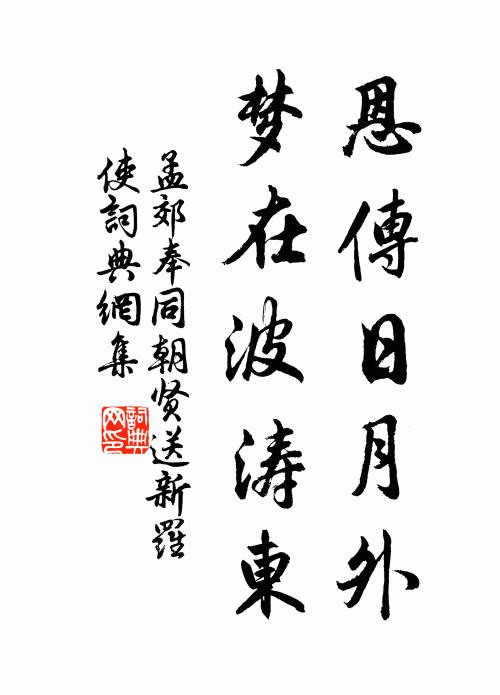 恩傳日月外
梦在波涛東
孟郊奉同朝贤送新羅
使詞典網集
詞典网印